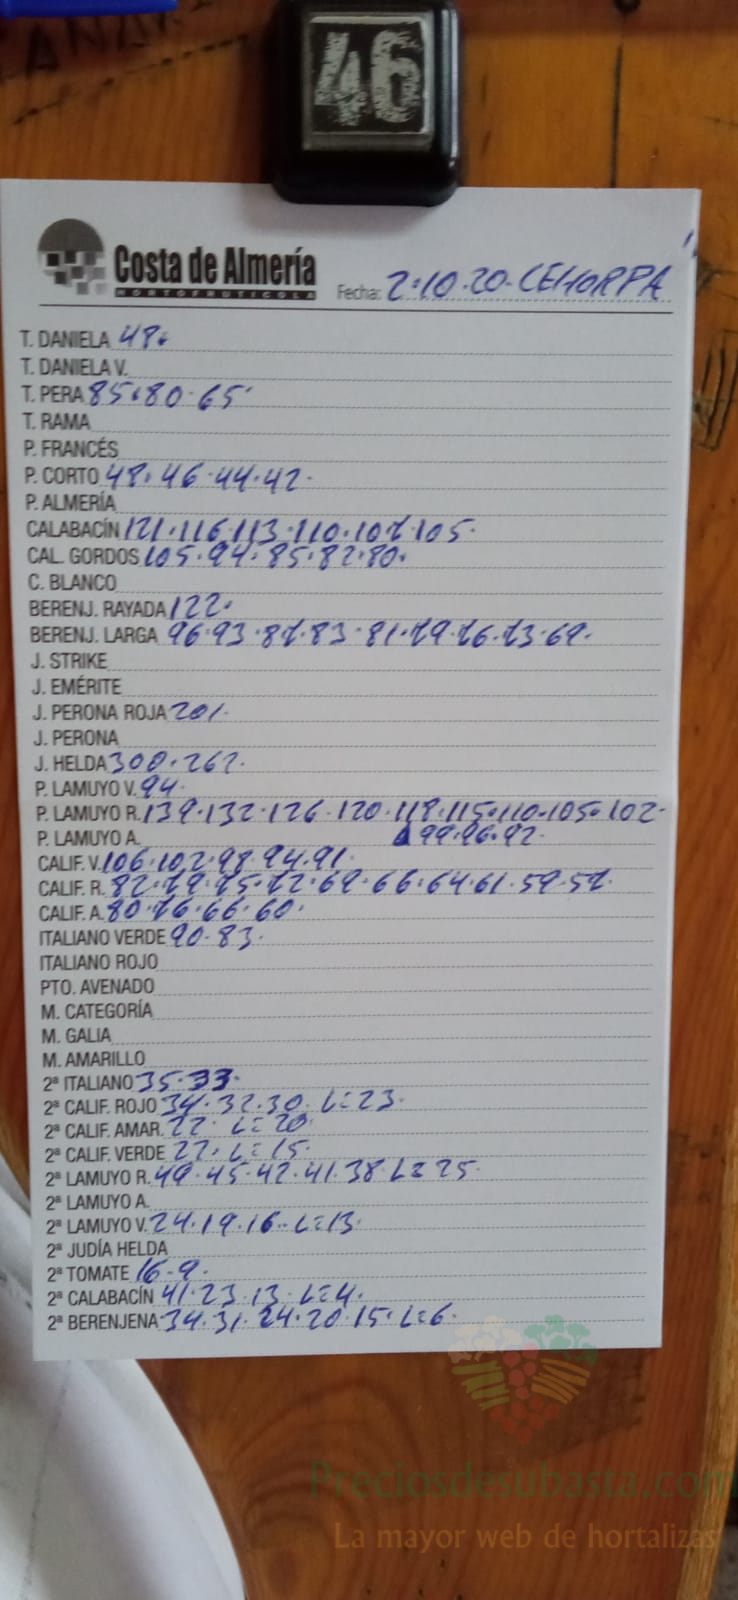 46
Costa de Almería
HORTOFRUTICOLA
Fecha: 2·10·20·CEHORPA
T. DANIELA 48·
T. DANIELA V.
T. PERA 85·80·65·
T. RAMA
P. FRANCÉS
P. CORTO 48·46·44·42·
P. ALMERÍA
CALABACÍN 121·116·113·110·107·105·
CAL. GORDOS 105·94·85·82·80·
C. BLANCO
BERENJ. RAYADA 122·
BERENJ. LARGA 96·93·87·83·81·79·76·73·69·
J. STRIKE
J. EMÉRITE
J. PERONA ROJA 201·
J. PERONA
J. HELDA 300·262·
P. LAMUYO V. 94·
P. LAMUYO R. 139·132·126·120·118·115·110·105·102·
P. LAMUYO A. 99·96·92·
CALIF. V. 106·102·98·94·91·
CALIF. R. 82·79·75·72·69·66·64·61·59·57·
CALIF. A. 80·76·66·60·
ITALIANO VERDE 90·83·
ITALIANO ROJO
PTO. AVENADO
M. CATEGORÍA
M. GALIA
M. AMARILLO
2ª ITALIANO 35·33·
2ª CALIF. ROJO 34·32·30· L=23·
2ª CALIF. AMAR. 22· L=20·
2ª CALIF. VERDE 22· L=15·
2ª LAMUYO R. 49·45·42·41·38 L=25·
2ª LAMUYO A.
2ª LAMUYO V. 24·19·16· L=13·
2ª JUDÍA HELDA
2ª TOMATE 16·9·
2ª CALABACÍN 41·23·13· L=4·
2ª BERENJENA 34·31·24·20·15· L=6·
Preciosdesubasta.com
La mayor web de hortalizas